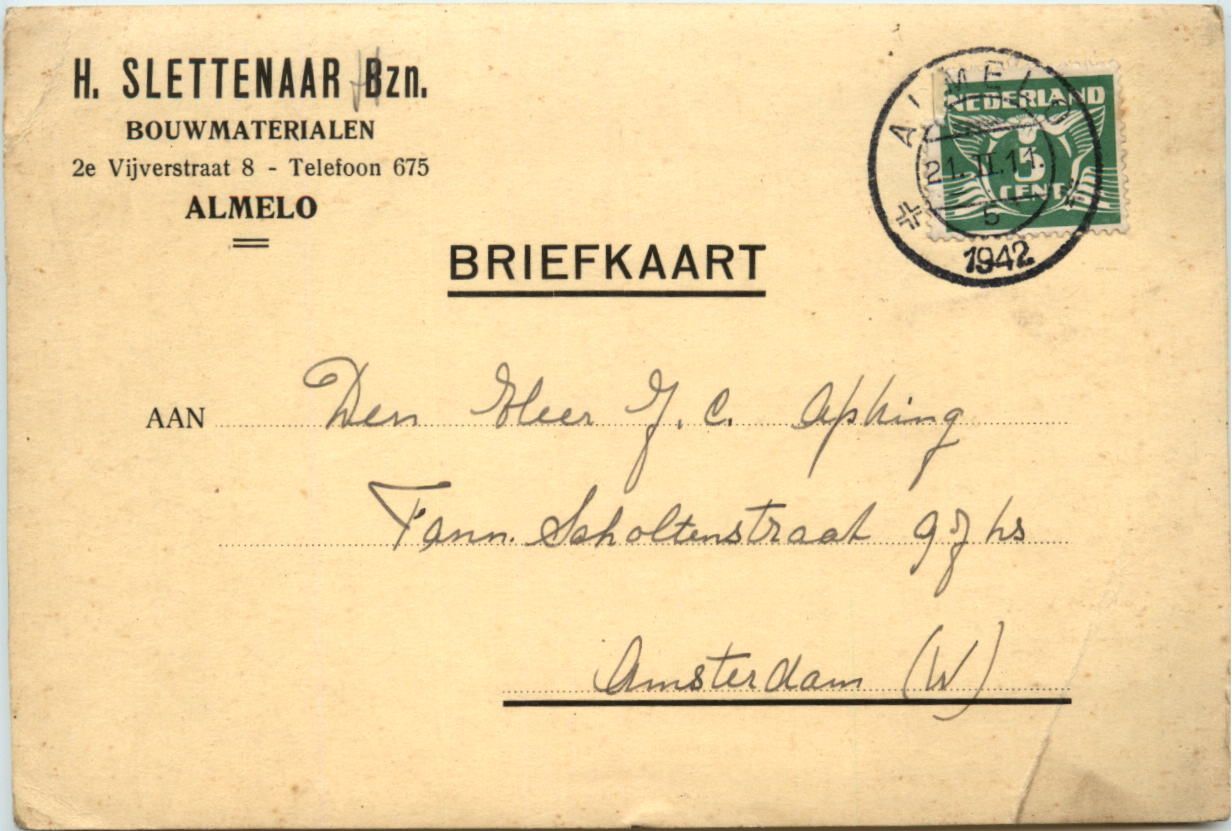 H. SLETTENAAR Bzn.
BOUWMATERIALEN
2e Vijverstraat 8 - Telefoon 675
ALMELO
ALMELO
21.II.11.
5
1942
NEDERLAND
5
CENT
BRIEFKAART
AAN Den Heer J. C. Apking
Fann. Scholtenstraat 97 hs
Amsterdam (W)